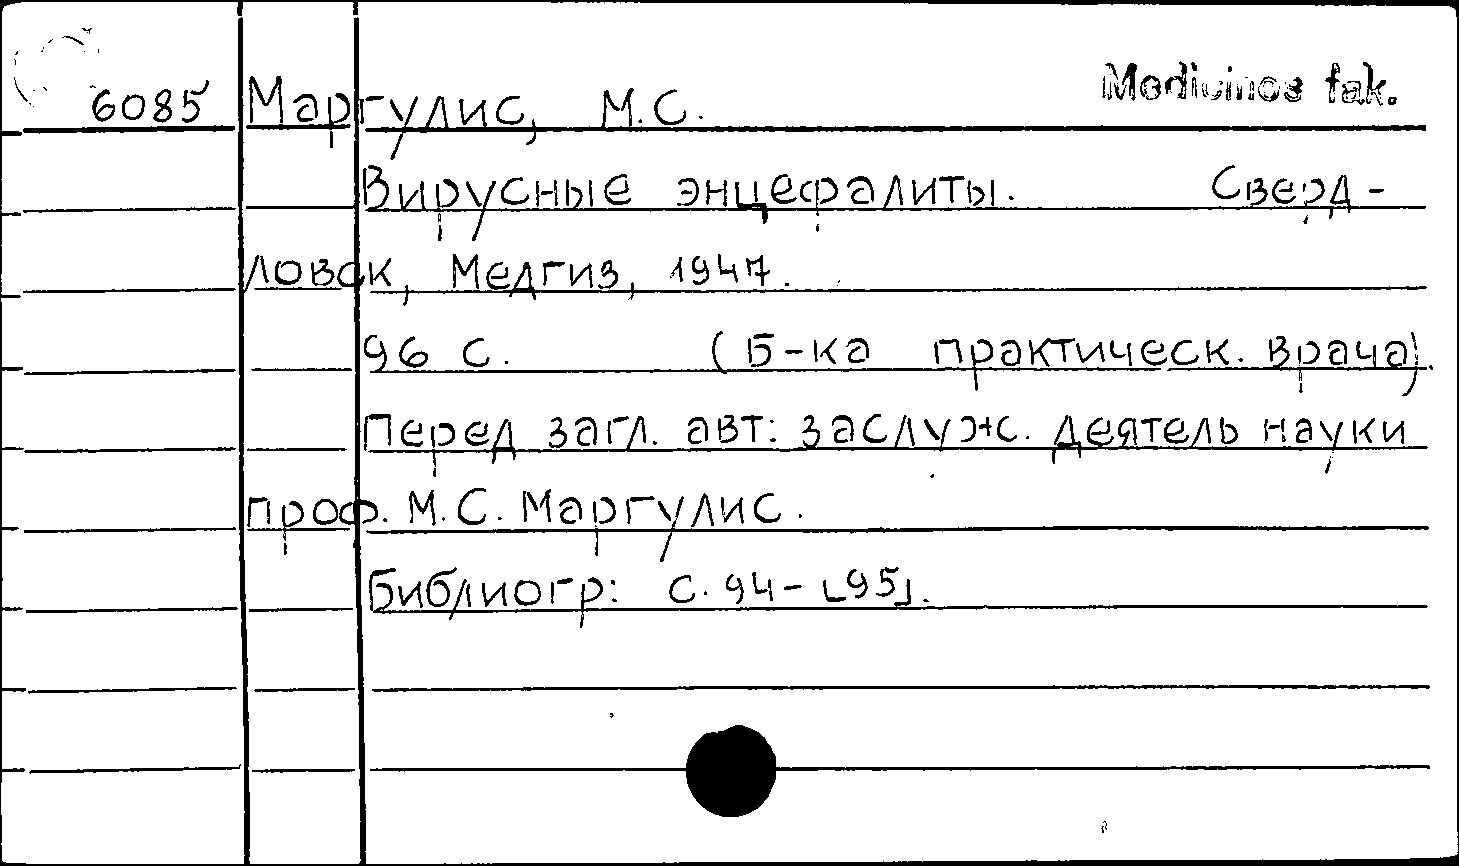 Medicinos fak.
6085 Маргулис, М.С.
Вирусные энцефалиты. Сверд-
ловск, Медгиз, 1947.
96 с. (Б-ка практическ. врача).
Перед загл. авт: заслуж. деятель науки
проф. М.С. Маргулис.
Библиогр: с. 94-[95].